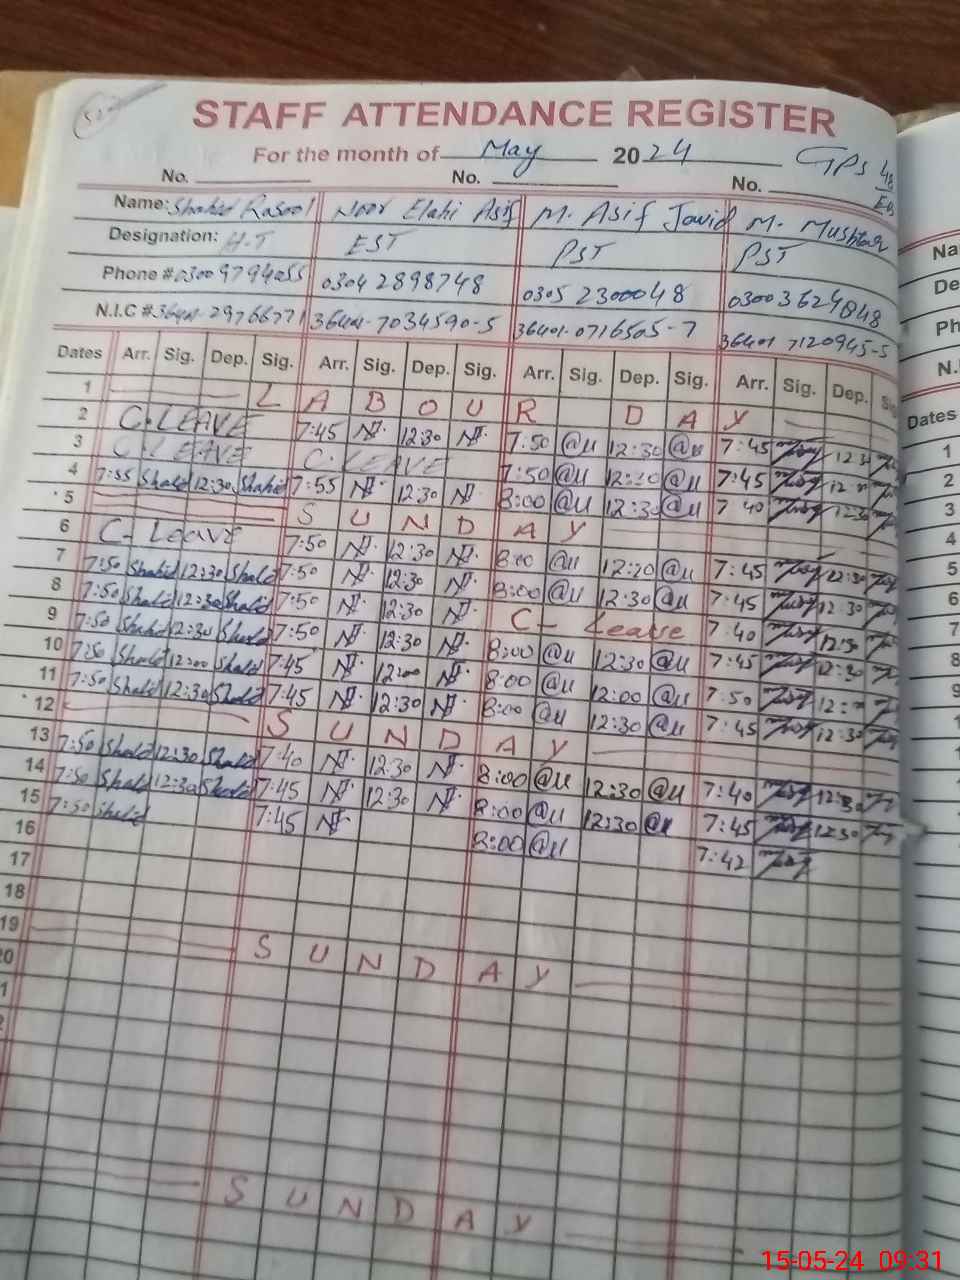 STAFF ATTENDANCE REGISTER
For the month of May 2024 GPS 48
No. No. No. EB
Name: Shahid Rasool Noor Elahi Asif M. Asif Javid M. Mushtaq
Designation: H-T EST PST PST
Phone # 0300 9794055 0304 2898748 0305 2300048 03003624848
N.I.C # 36401-7034590-5 36401-0716505-7 36401 7120945-5
Dates Arr. Sig. Dep. Sig. Arr. Sig. Dep. Sig. Arr. Sig. Dep. Sig. Arr. Sig. Dep. Sig
1 L A B O U R D A Y
2 C.LEAVE 7:45 12:30 7:50 12:30 7:45 12:30
3 C.LEAVE C.LEAVE 7:50 12:30 7:45
4 7:55 Shahid 12:30 Shahid 7:55 12:30 8:00 12:30 7:40 12:30
5 S U N D A Y
6 C-Leave 7:50 12:30 8:00 12:30 7:45 12:30
7 7:50 Shahid 12:30 Shahid 7:50 12:30 8:00 12:30 7:45 12:30
8 7:50 Shahid 12:30 Shahid 7:50 12:30 C-Leave 7:40 12:30
9 7:50 Shahid 12:30 Shahid 7:50 12:30 8:00 12:30 7:45 12:30
10 7:50 Shahid 12:00 Shahid 7:45 12:00 8:00 12:00 7:50
11 7:50 Shahid 12:30 Shahid 7:45 12:30 8:00 12:30 7:45 12:30
12 S U N D A Y
13 7:50 Shahid 12:30 Shahid 7:40 12:30 8:00 12:30 7:40 12:30
14 7:50 Shahid 12:30 Shahid 7:45 12:30 8:00 12:30 7:45 12:30
15 7:50 Shahid 7:45 8:00 7:42
16
17
18
19 S U N D A Y
20
1
2
S U N D A Y
Na
De
Ph
N.I
Dates
1
2
3
4
5
6
7
8
9
1
1
15-05-24 09:31